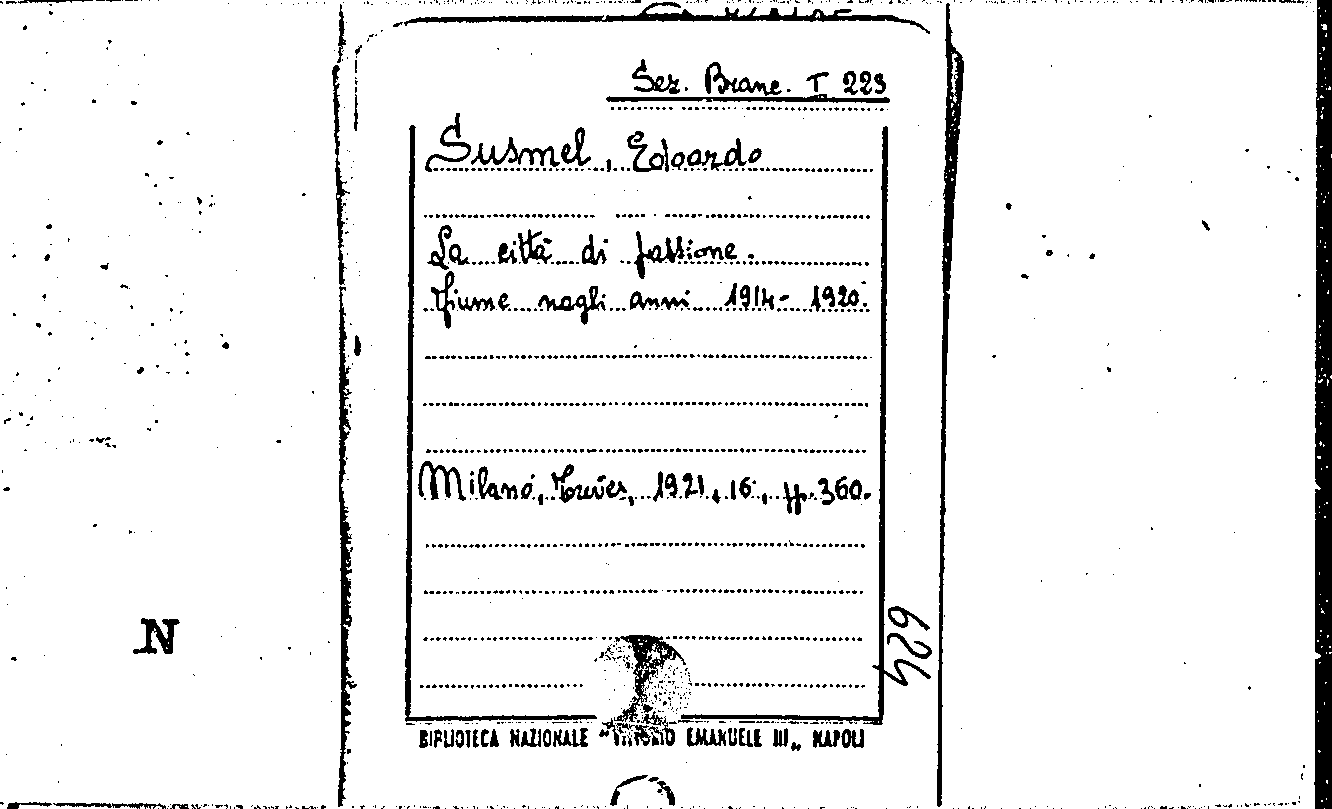 Sez. Branc. I 223
Susmel, Edoardo
La città di passione.
Fiume negli anni 1914-1920.
Milano, Treves, 1921, 16°, pp. 360.
624
N
BIBLIOTECA NAZIONALE "VITTORIO EMANUELE III„ NAPOLI